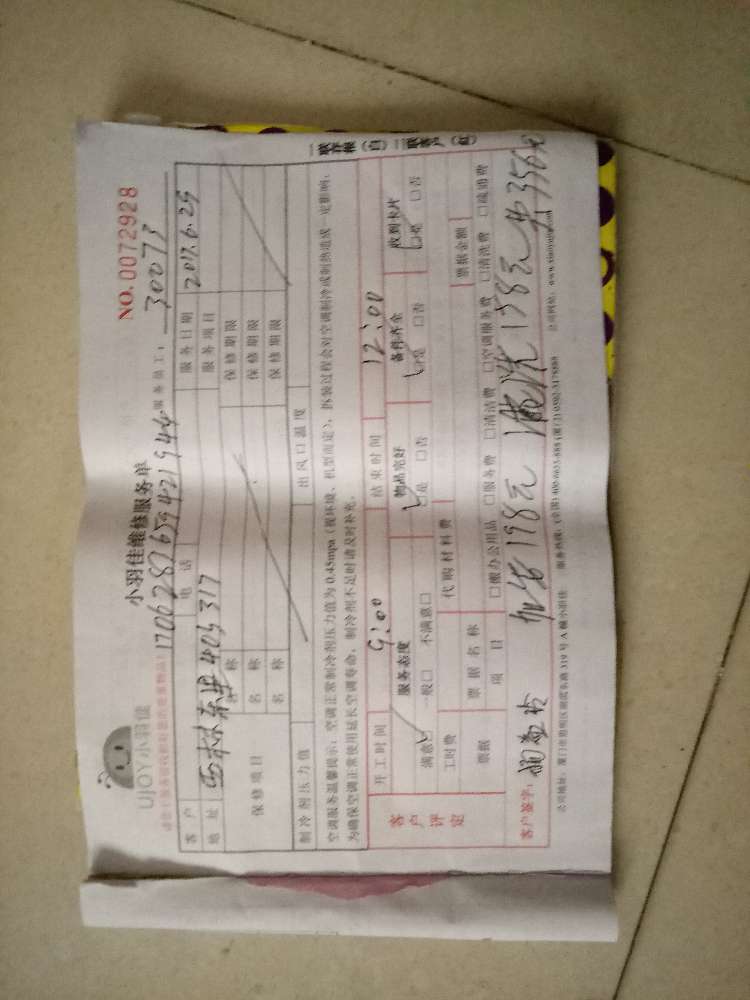 UJOY小羽佳
小羽佳维修服务单
NO.0072928
服务员工: 30073
客户
电话
服务日期 2017.6.29
地址
服务项目
保修项目 名称 保修期限
名称 保修期限
名称 保修期限
制冷剂压力值 出风口温度
空调服务温馨提示: 空调正常制冷剂压力值为0.45mpa(视环境、机型而定), 拆装过程会对空调制冷或制热造成一定影响,
为确保空调正常使用延长空调寿命, 制冷剂不足时请及时补充。
开工时间 9:00 结束时间 12:00
客户评定
服务态度 物品完好 备件齐全 收到卡片
满意☑ 一般□ 不满意□ ☑是 □否 ☑是 □否 ☑是 □否
工时费 代购材料费 票据金额
票据 票据名称
项目 □搬办公用品 □服务费 □清洁费 □空调服务费 □清洗费 □疏通费
客户签字: 198元 清洗158元 共356元
服务热线: (全国)400-6633-888 公司网址: www.xiaoyujia.com
一联存根(白) 二联客户(红)